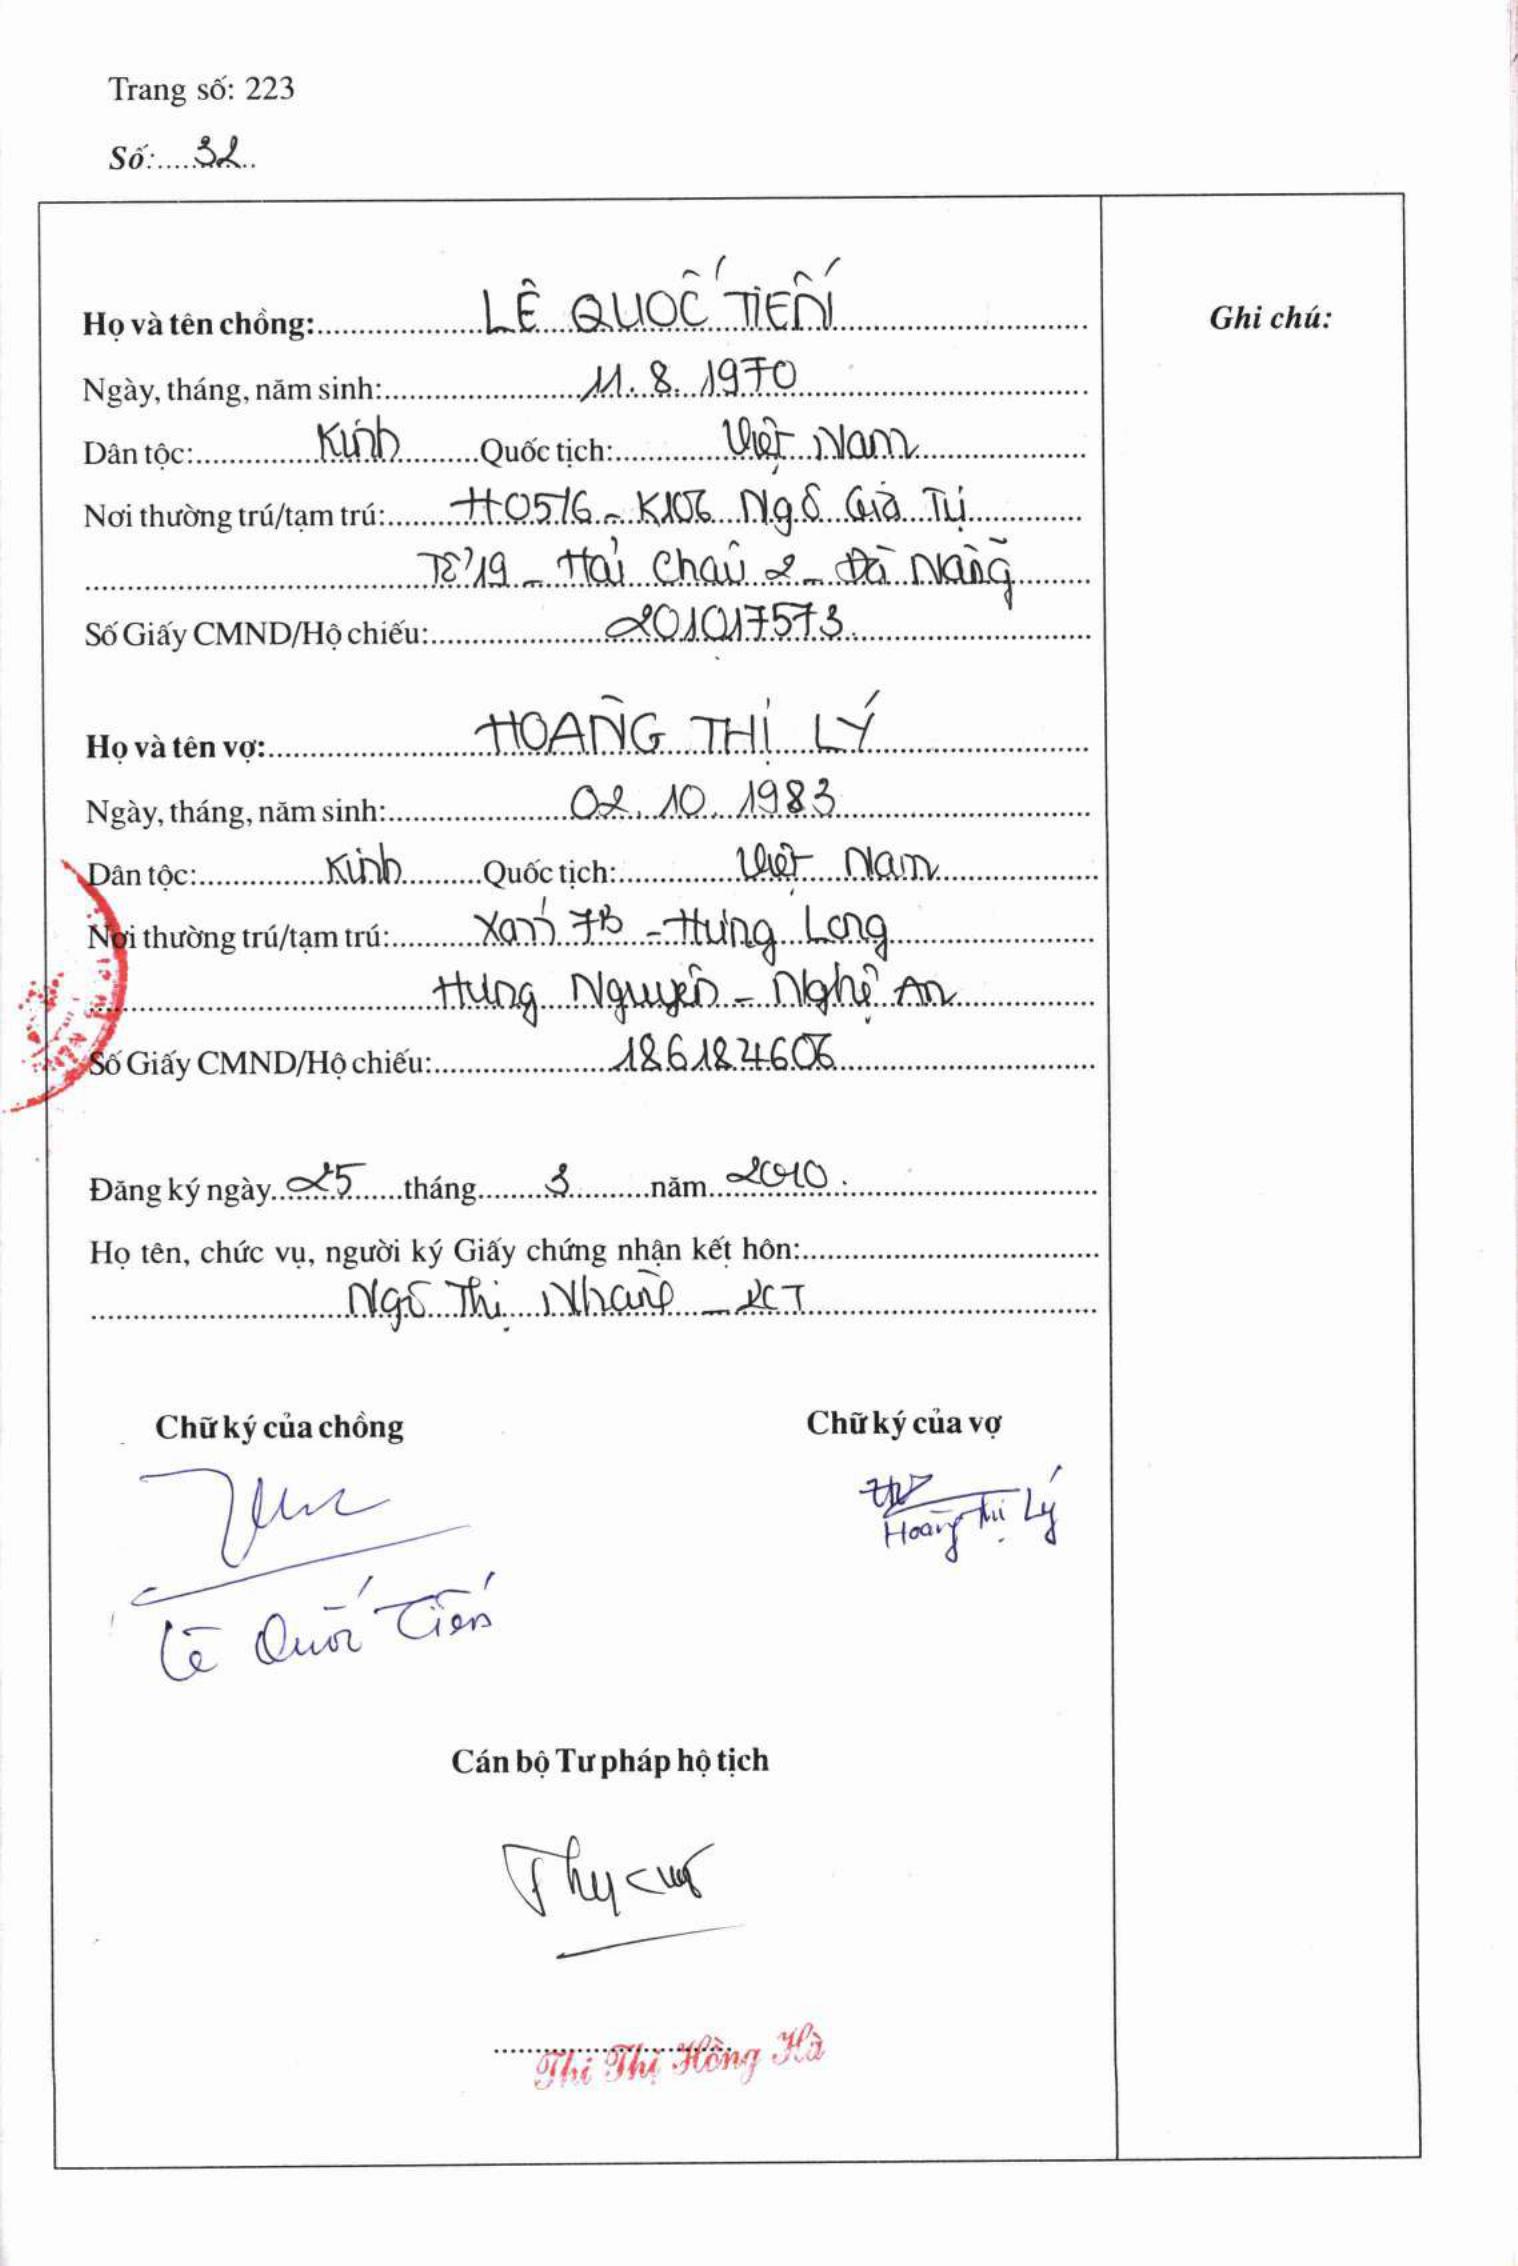 Trang số: 223
Số: 32
Họ và tên chồng: LÊ QUỐC TIẾN
Ghi chú:
Ngày, tháng, năm sinh: 11.8.1970
Dân tộc: Kinh Quốc tịch: Việt Nam
Nơi thường trú/tạm trú: H05/6 - K106 Ngô Gia Tự
Tổ 19 - Hải Châu 2 - Đà Nẵng
Số Giấy CMND/Hộ chiếu: 201017573
Họ và tên vợ: HOÀNG THỊ LÝ
Ngày, tháng, năm sinh: 02.10.1983
Dân tộc: Kinh Quốc tịch: Việt Nam
Nơi thường trú/tạm trú: Xóm 7B - Hưng Long
Hưng Nguyên - Nghệ An
Số Giấy CMND/Hộ chiếu: 186184606
Đăng ký ngày 25 tháng 3 năm 2010
Họ tên, chức vụ, người ký Giấy chứng nhận kết hôn:
Ngô Thị Nhàn - PCT
Chữ ký của chồng
Chữ ký của vợ
Hoàng Thị Lý
Lê Quốc Tiến
Cán bộ Tư pháp hộ tịch
Thi Thị Hồng Hà